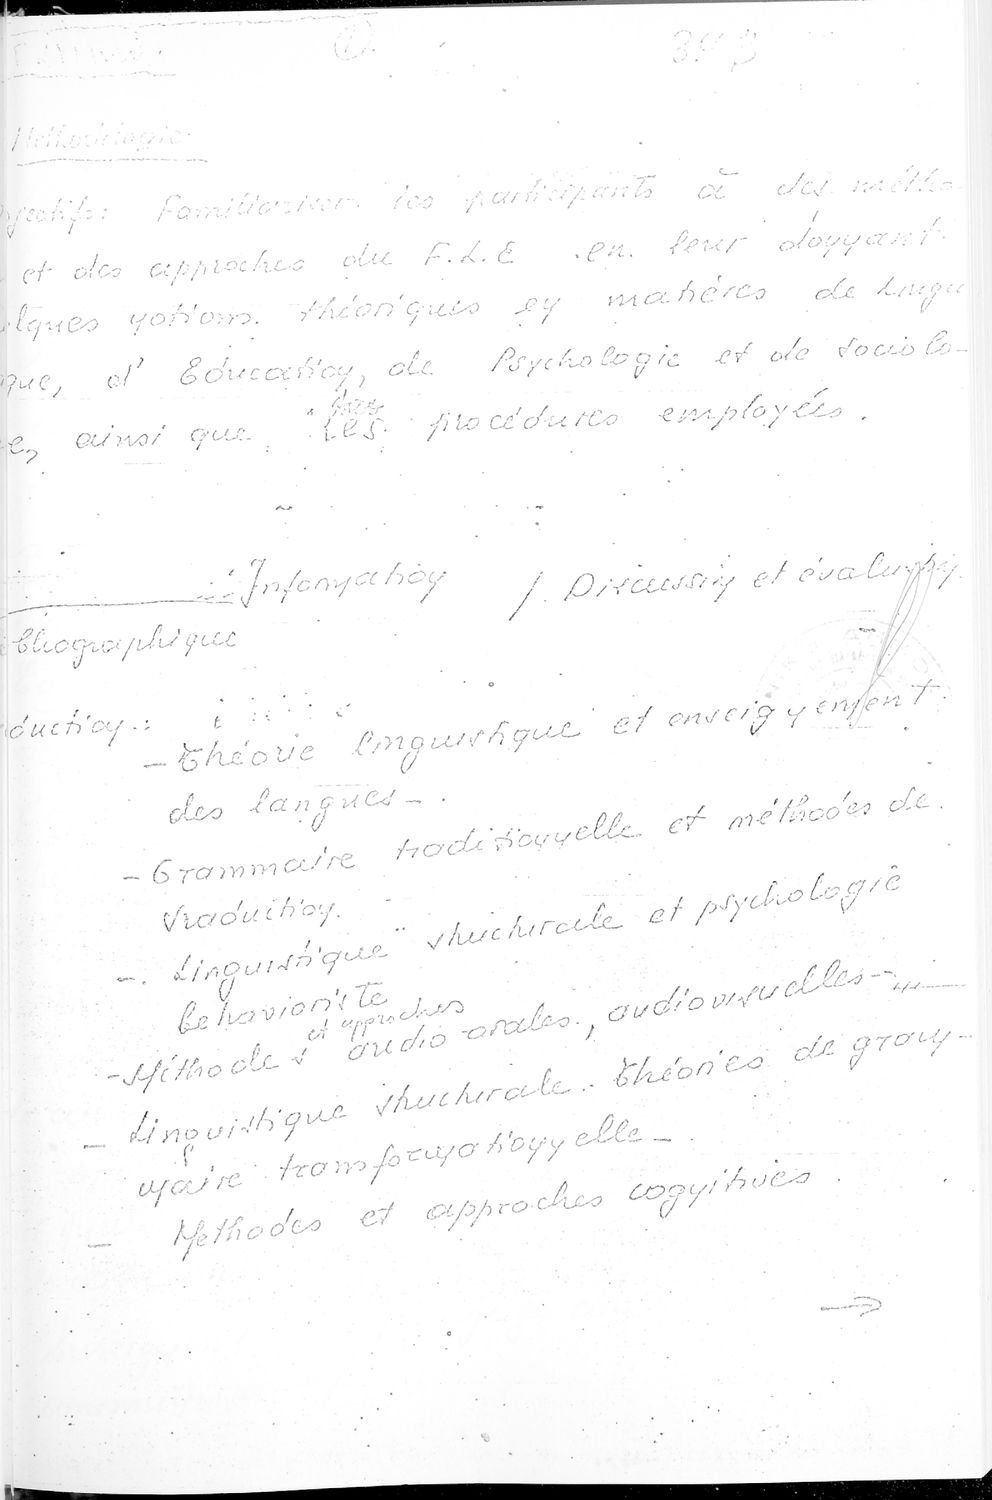 Méthodologie
jectifs: Familiariser les participants à des métho
et des approches du F.L.E en leur donnant
lques notions théoriques en matières de Lingu
que, d' Education, de Psychologie et de sociolo-
e, ainsi que les procédures employées.
Information / Discussion et évaluation
bliographique
duction:
- Théorie linguistique et enseignement
des langues-.
- Grammaire traditionnelle et méthodes de
traduction.
- Linguistique structurale et psychologie
behavioriste
et approches
- Méthodes audio-orales, audiovisuelles-
- Linguistique structurale. Théories de gram-
maire transformationnelle-
- Methodes et approches cognitives
→